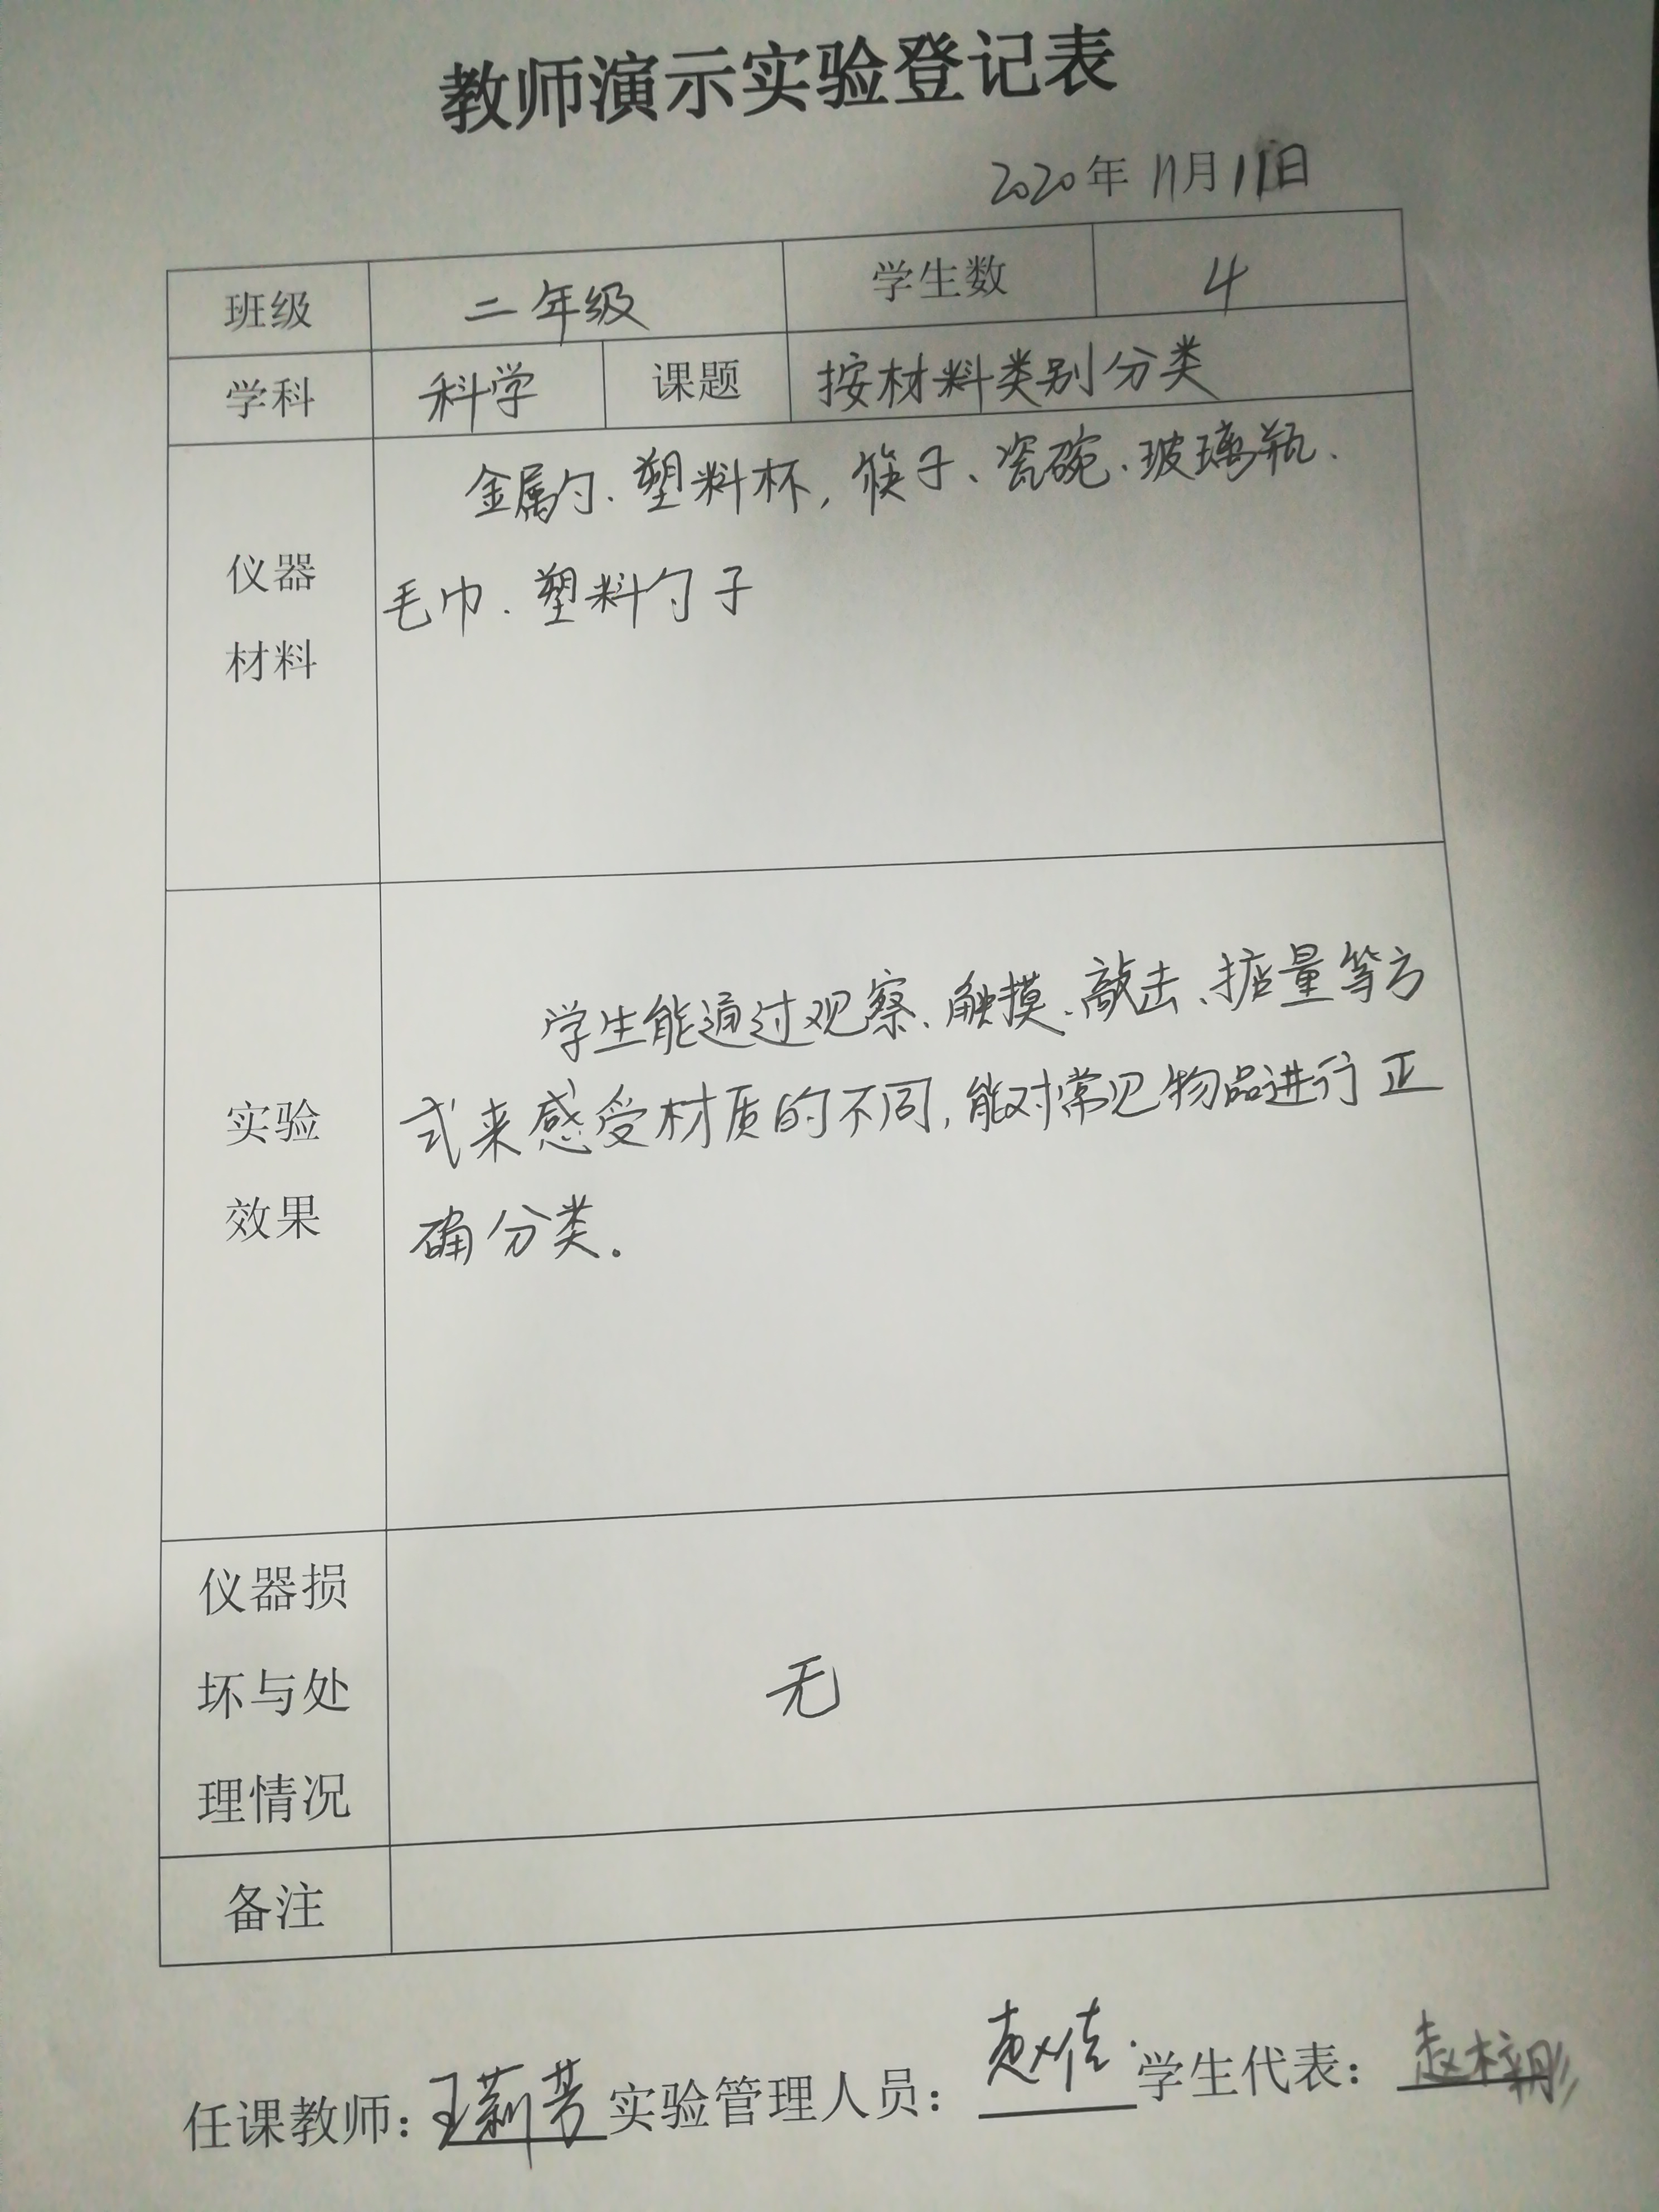 教师演示实验登记表
2020年11月11日
班级 二年级 学生数 4
学科 科学 课题 按材料类别分类
仪器
材料
金属勺、塑料杯，筷子、瓷碗、玻璃瓶、
毛巾、塑料勺子
实验
效果
学生能通过观察、触摸、敲击、掂量等方
式来感受材质的不同，能对常见物品进行正
确分类。
仪器损
坏与处
理情况
无
备注
任课教师：王莉芳 实验管理人员：赵佳 学生代表：赵梓彤